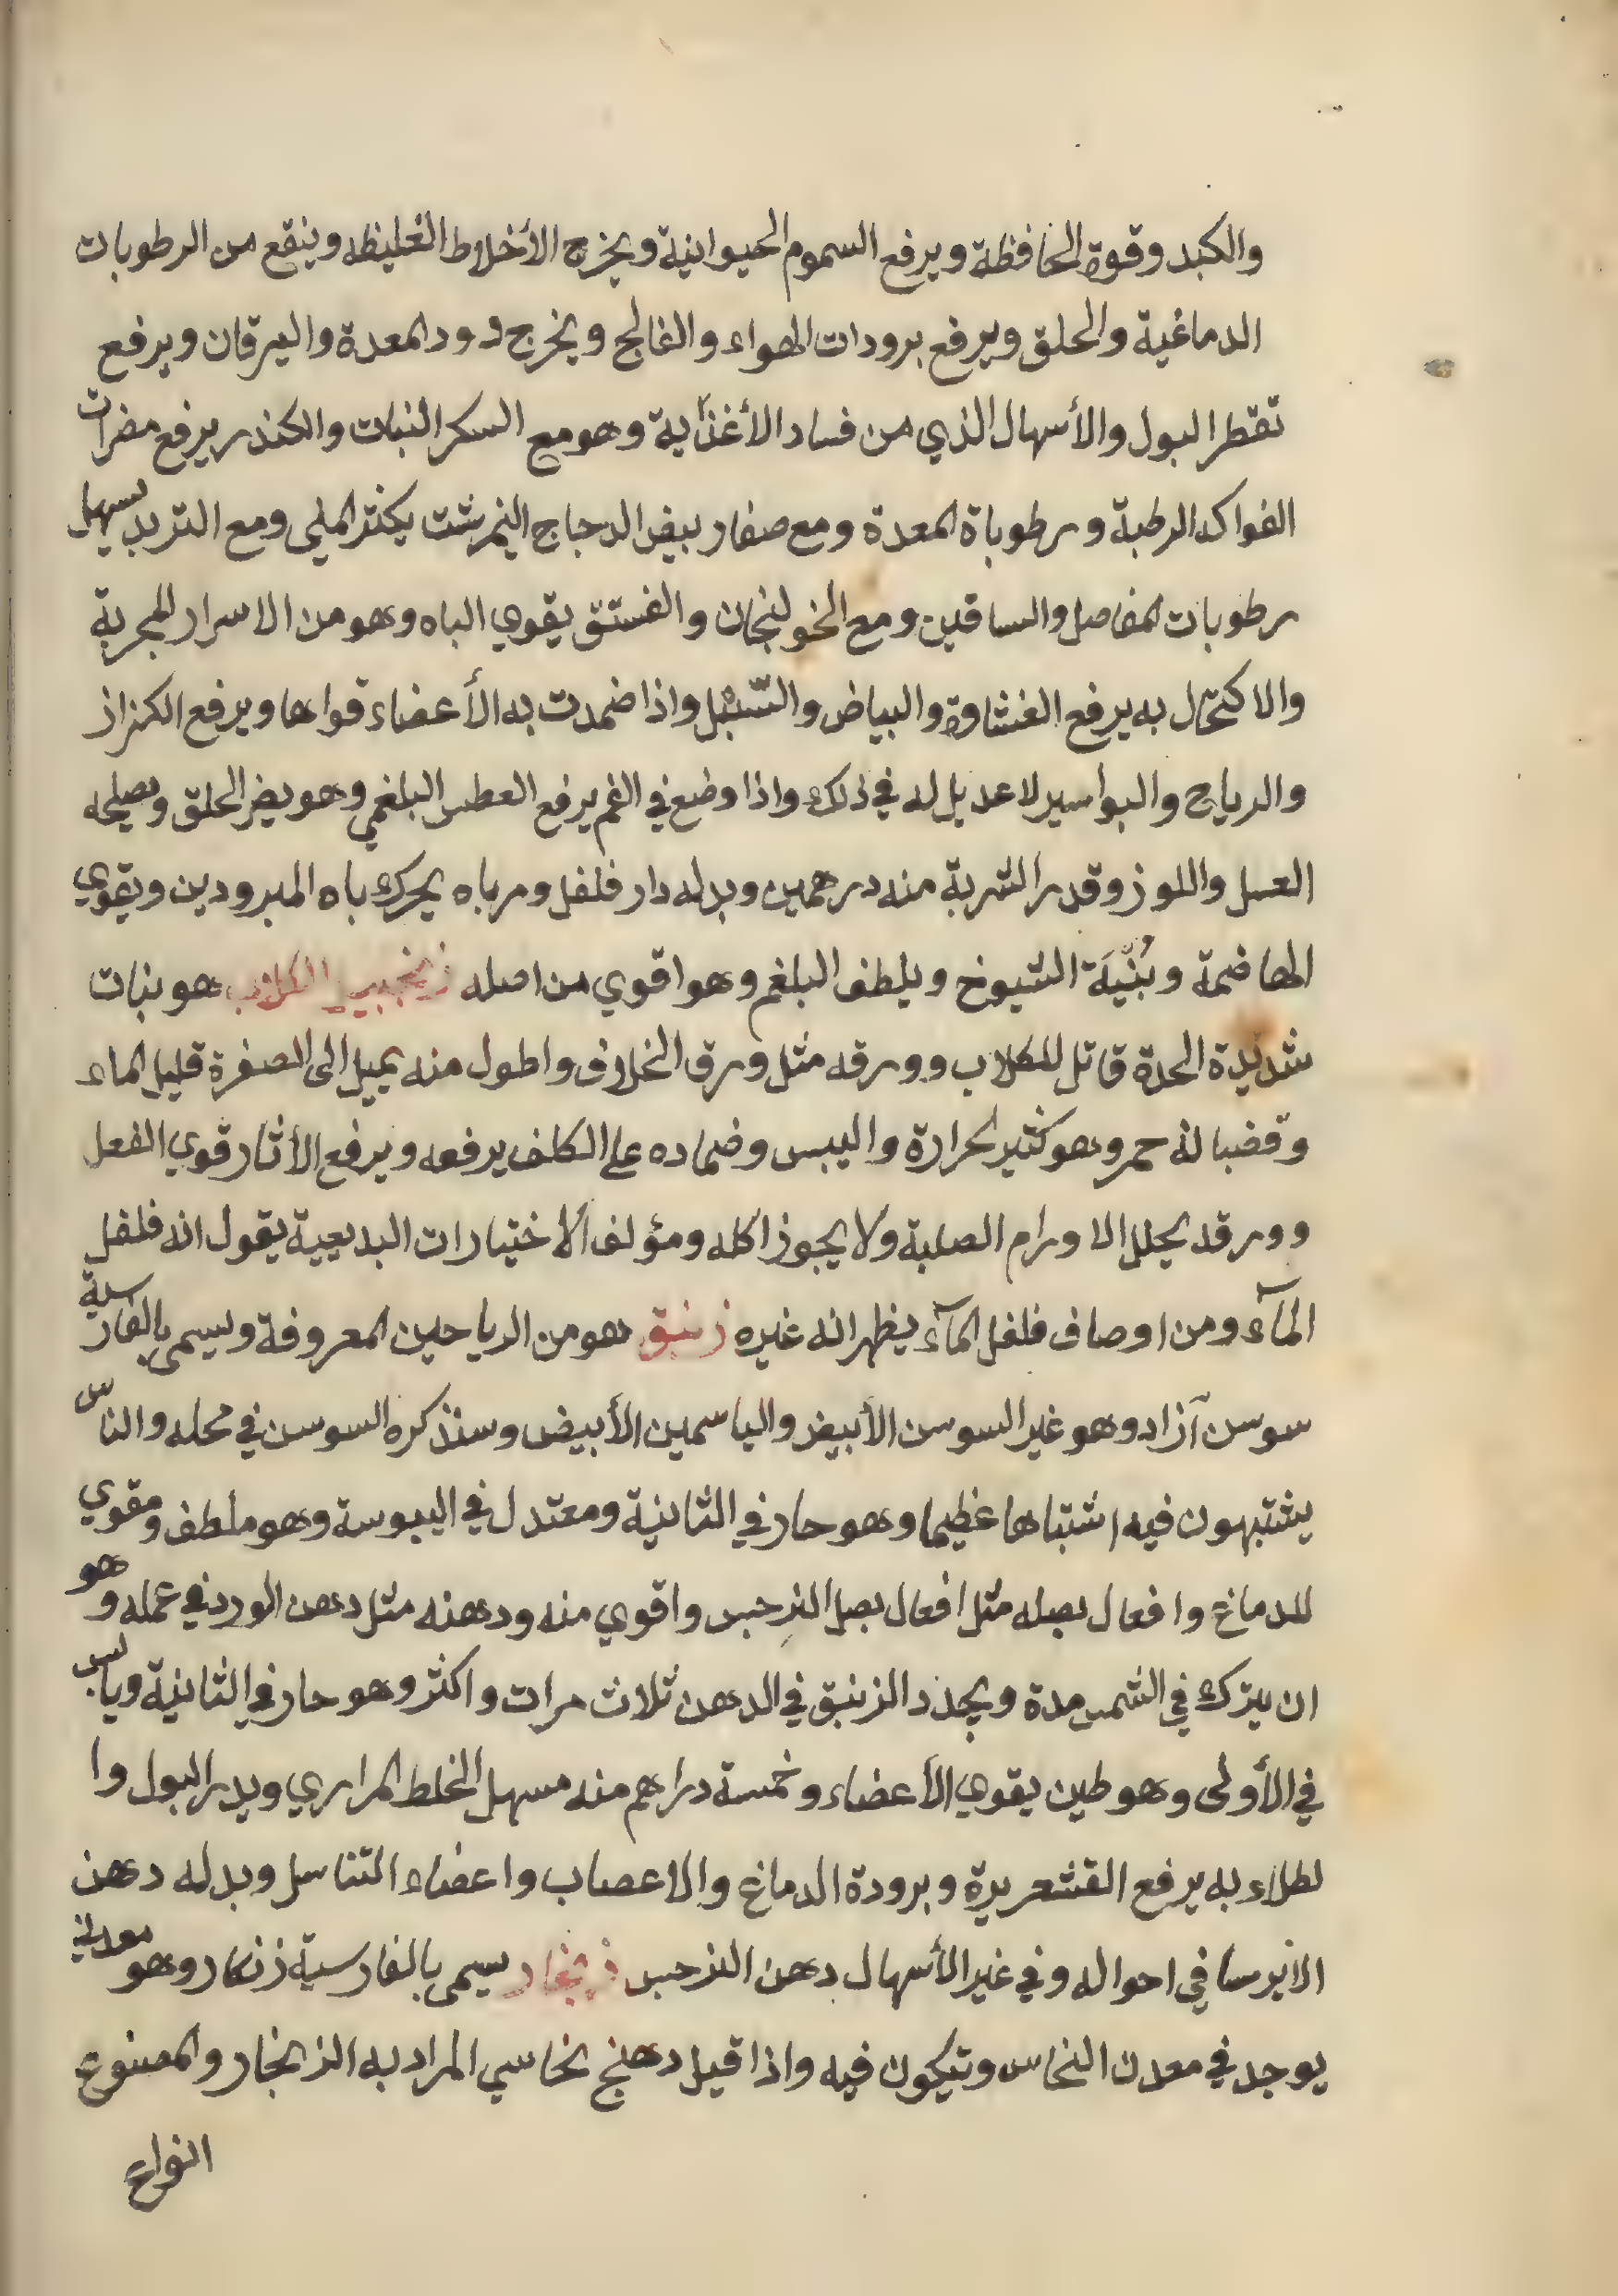 والكبد وقوة الحافظة ويرفع السموم الحيوانية ويخرج الأخلاط الغليظه وينقع من الرطوبات
الدماغية والحلق ويرفع برودات الهواء والفالج ويخرج دود المعدة واليرقان ويرفع
تقطر البول والأسهال الذي من فساد الأغذآية وهو مع السكر النبات والكندر يرفع مضرات
الفواكه الرطبة ورطوباة المعدة ومع صفار بيض الدجاج النيمرشت يكثر المني ومع التربد يسهل
رطوبات المفاصل والساقين ومع الخولنجان والفستق يقوي الباه وهو من الاسرار المجربة
والاكتحال به يرفع الغشاوة والبياض والسّبل واذا ضمدت به الأعضاء قواها ويرفع الكزاز
والرياح والبواسير لا عديل له في ذلك واذا وضع في الفم يرفع العطس البلغمي وهو يضر الحلق ويصلحه
العسل واللوز وقدر الشربة منه درهمين وبدله دار فلفل ومرباه يحرك باه المبرودين ويقوي
الهاضمة وبُنّيَة الشيوخ ويلطف البلغم وهو اقوي من اصله زنجبيل الكلاب هو بنات
شديدة الحدة قاتل للكلاب وورقه مثل ورق الخلاف واطول منه يميل الى الصفرة قليل الماء
وقضبانه حمر وهو كثير الحرارة واليبس وضماده على الكلف يرفعه ويرفع الأثار قوي الفعل
وورقه يحلل الاورام الصلبة ولا يجوز اكله ومؤلف الاختيارات البديعية يقول انه فلفل
المآء ومن اوصاف فلفل المآء يظهر انه غيره زنبق هو من الرياحين المعروفة ويسمى بالفارسية
سوسن آزاد وهو غير السوسن الأبيض والياسمين الأبيض وسنذكره السوسن في محله والناس
يشتبهون فيه اشتباها عظيما وهو حار في الثانية ومعتدل في اليبوسة وهو ملطف ومقوي
للدماغ وافعال بصله مثل افعال بصل النرجس واقوي منه ودهنه مثل دهن الورد في عمله وهو
ان يترك في الشمس مدة ويجدد الزنبق في الدهن ثلاث مرات واكثر وهو حار في الثانية ويابس
في الأولى وهو طين يقوي الأعضاء وخمسة دراهم منه مسهل الخلط المراري ويدر البول وا
لطلاء به يرفع القشعريرة وبرودة الدماغ والاعصاب واعضاء التناسل وبدله دهن
الايرسا في احواله وفي غير الأسهال دهن النرجس زنجار يسمى بالفارسية زنكار وهو معدني
يوجد في معدن النحاس ويتكون فيه واذا قيل دهنج نحاسي المراد به الزنجار والمصنوع
انواع